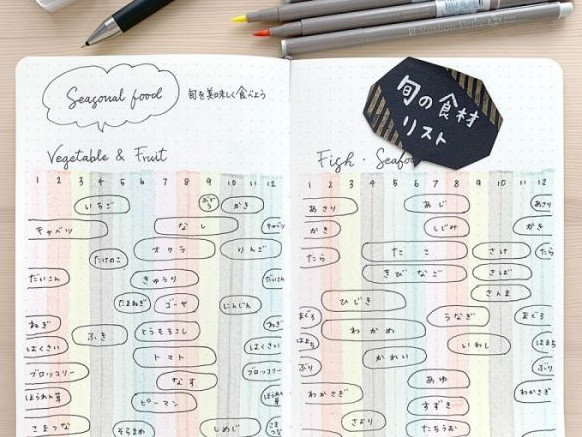 Seasonal food
旬を美味しく食べよう
旬の食材
リスト
Vegetable & Fruit
1 2 3 4 5 6 7 8 9 10 11 12
いちご ぶどう かき
キャベツ なし キャベツ
たけのこ オクラ りんご
だいこん きゅうり だいこん
たまねぎ ゴーヤ にんじん
ねぎ ふき とうもろこし ねぎ
はくさい トマト はくさい
ブロッコリー なす ブロッコリー
ほうれん草 ピーマン ほうれん草
こまつな そらまめ しめじ こまつな
Fish・Seafood
1 2 3 4 5 6 7 8 9 10 11 12
あさり あじ あさり
かき しじみ かき
たら たこ さけ たら
きびなご さば
ひじき さんま
まぐろ わかめ うなぎ まぐろ
はまち かれい いわし はまち
ぶり あゆ ぶり
わかさぎ すずき わかさぎ
さより たちうお